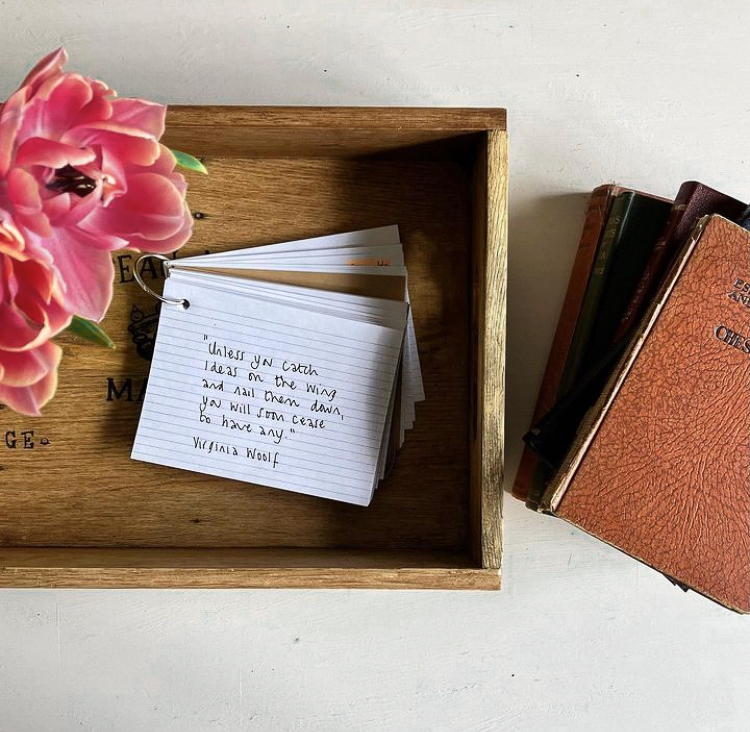 "Unless you catch
ideas on the wing
and nail them down,
you will soon cease
to have any."
Virginia Woolf
MA
GE.
CHES